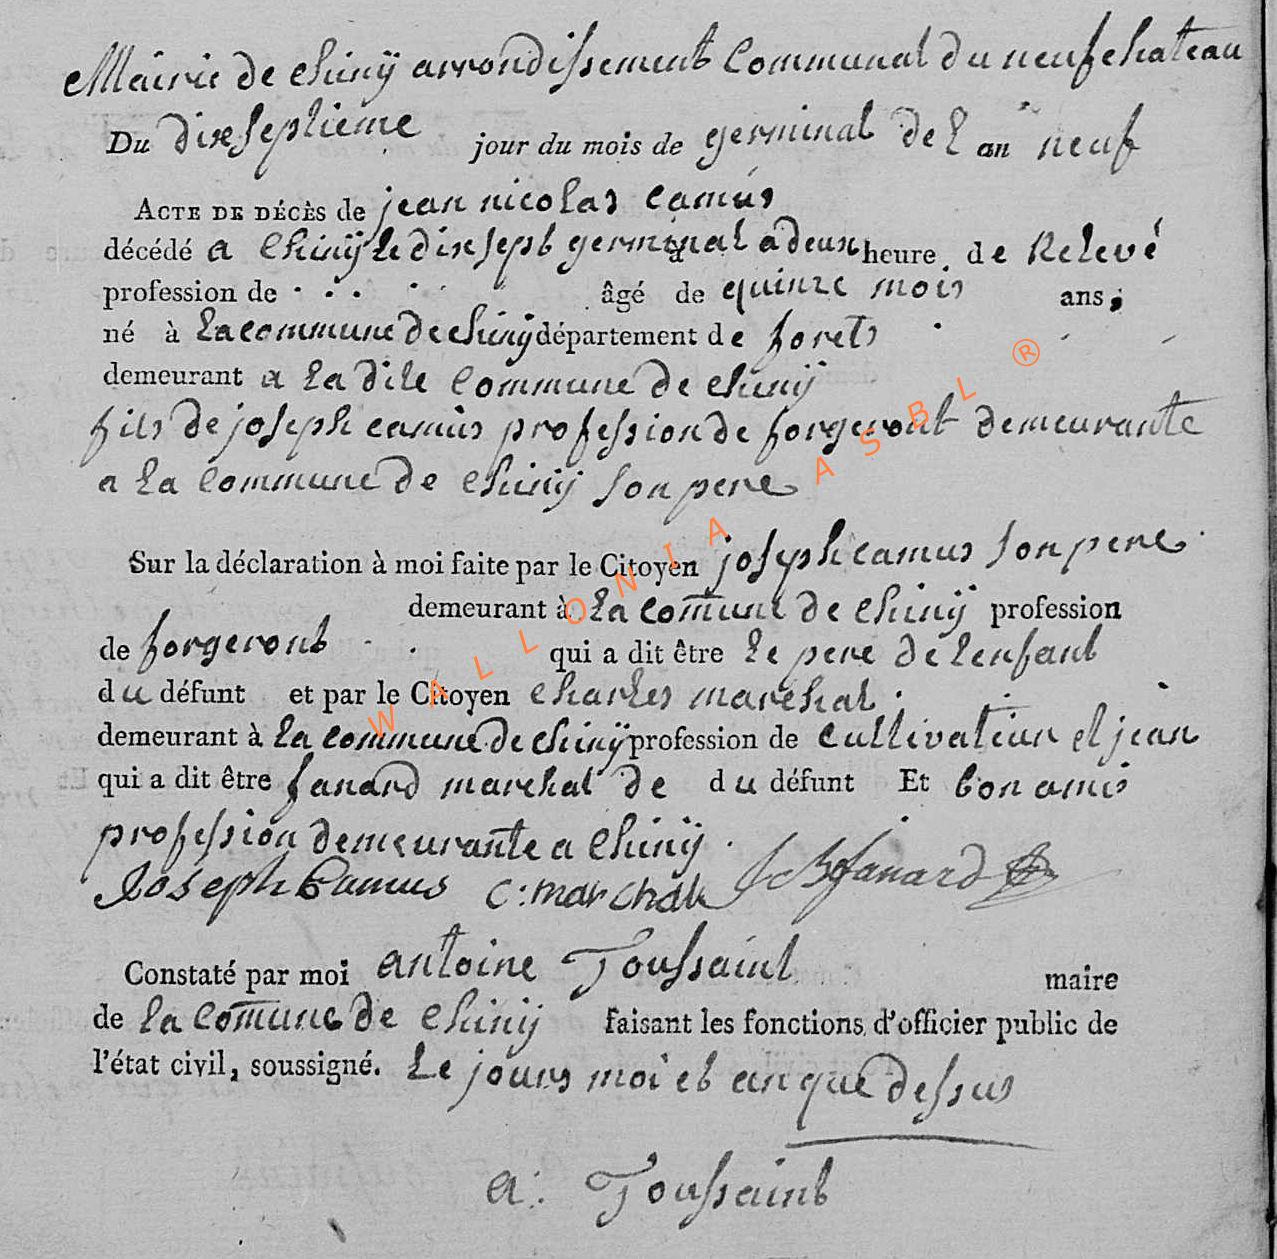 Mairie de chiny arrondissement Communal du neufchateau
Du dixseptieme jour du mois de germinal de l an neuf
ACTE DE DÉCÈS de jean nicolas camus
décédé a chiny le dixsept germinal à a deux heure de Relevé
profession de . . . . âgé de quinze mois ans ;
né à la commune de chiny département de forets
demeurant a la dite commune de chiny
fils de joseph camus profession de forgeront demeurante
a la commune de chiny son pere
Sur la déclaration à moi faite par le Citoyen joseph camus son pere
demeurant à la comune de chiny profession
de forgeront qui a dit être le pere de lenfant
du défunt et par le Citoyen charles marchal
demeurant à la commune de chiny profession de cultivateur et jean
qui a dit être fanard marchal de du défunt Et bon amis
profession demeurante a chiny .
Joseph Camus C : marchal fanard
Constaté par moi antoine Toussaint maire
de la comune de chiny faisant les fonctions d'officier public de
l'état civil, soussigné. Le jours moi et an que dessus
a : Toussaint
WALLONIA ASBL ®